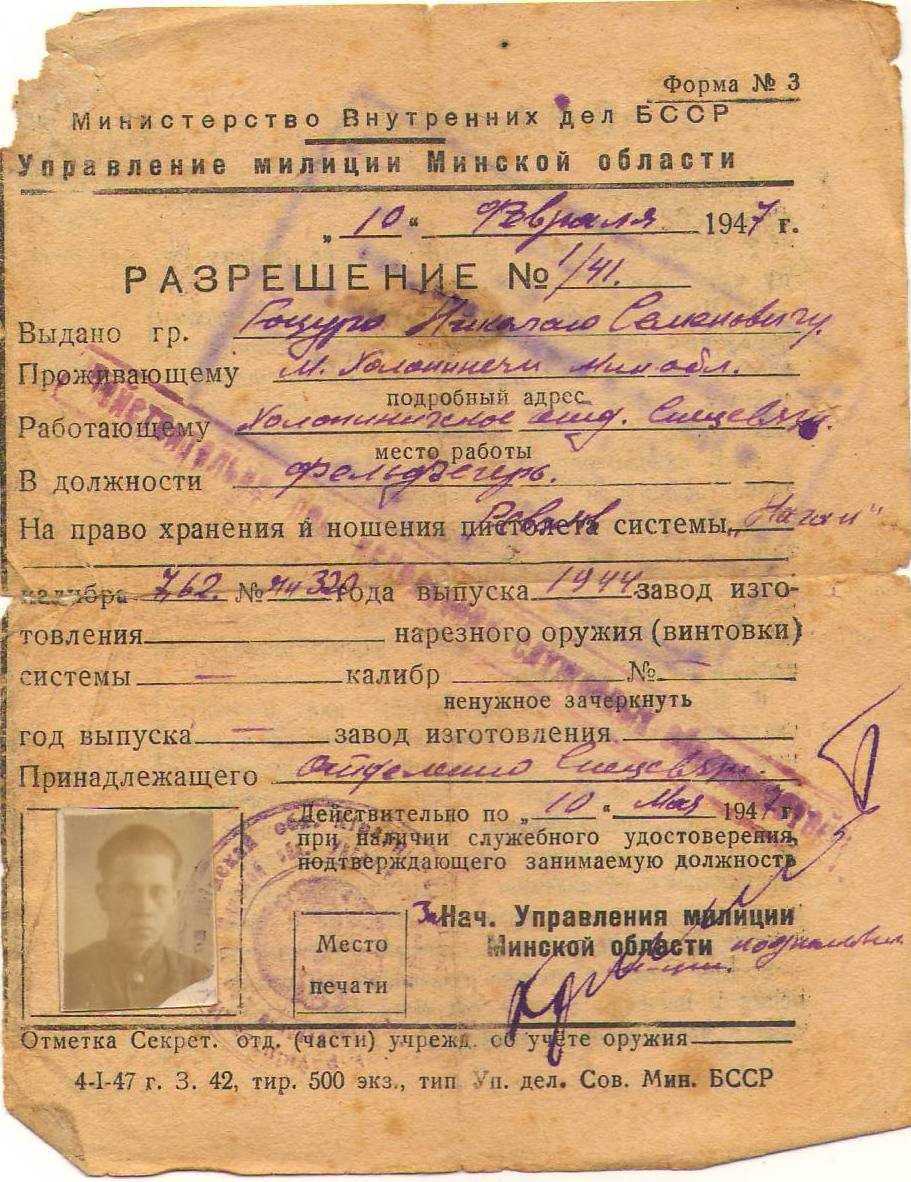 Форма № 3
Министерство Внутренних дел БССР
Управление милиции Минской области
„ 10 “ Февраля 1947 г.
РАЗРЕШЕНИЕ № 1/41.
Выдано гр. Гоцуло Николаю Семеновичу
Проживающему М. Холопиничи Мин обл.
подробный адрес
Работающему Холопиничское отд. Спецсвязи.
место работы
В должности Фельдъегерь.
На право хранения и ношения пистолета Револьв системы „Наган“
калибра 7,62. № года выпуска 1944 завод изго-
товления нарезного оружия (винтовки)
системы — калибр №
ненужное зачеркнуть
год выпуска — завод изготовления
Принадлежащего Отделению Спецсвязи.
Действительно по „ 10 “ Мая 1947 г.
при наличии служебного удостоверения,
подтверждающего занимаемую должность
Зам Нач. Управления милиции
Минской области подполковник
милиции.
Место
печати
Отметка Секрет. отд. (части) учрежд. об учете оружия
4-I-47 г. З. 42, тир. 500 экз., тип Уп. дел. Сов. Мин. БССР